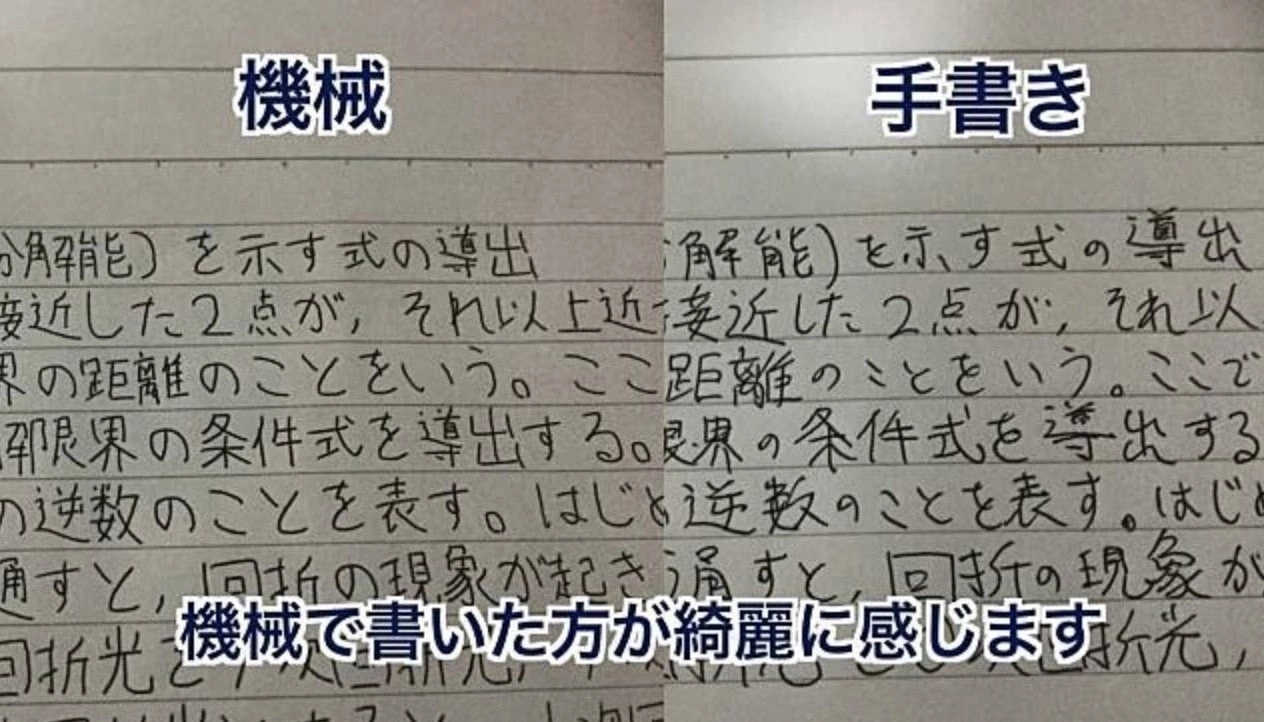 機械
分解能)を示す式の導出
接近した2点が,それ以上近
界の距離のことをいう。ここ
解限界の条件式を導出する。
の逆数のことを表す。はじめ
通すと,回折の現象が起き
回折光を
手書き
解能)を示す式の導出
接近した2点が,それ以
距離のことをいう。ここで
限界の条件式を導出する
逆数のことを表す。はじめ
通すと,回折の現象が
折光,
機械で書いた方が綺麗に感じます